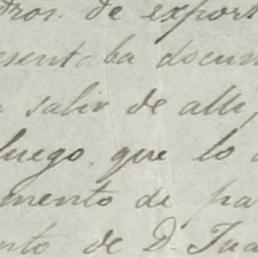 de export
esentaba docum
salir de alli,
luego, que lo
mento de pa
nto de D. Jua